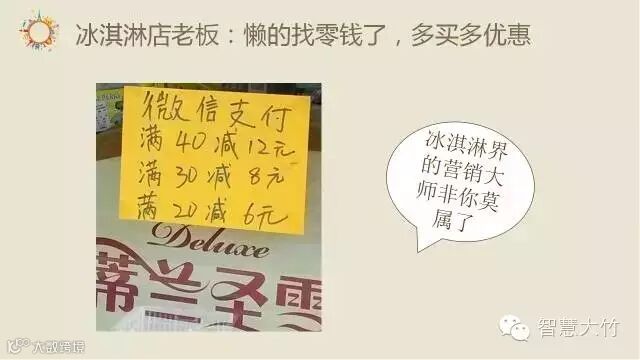 冰淇淋店老板：懒的找零钱了，多买多优惠
微信支付
满40减12元
满30减8元
满20减6元
Deluxe
蒂兰圣雪
冰淇淋界
的营销大
师非你莫
属了
智慧大竹
大数跨境